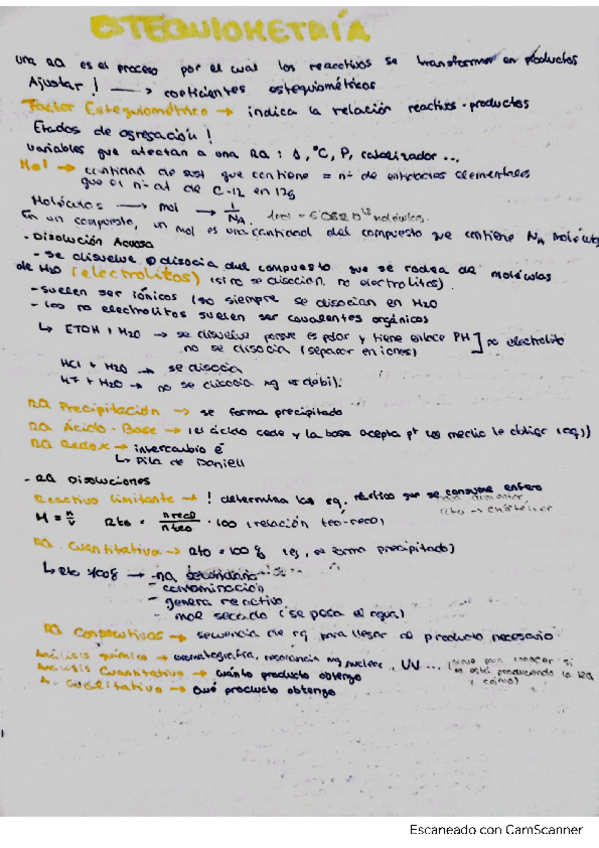 ESTEQUIOMETRÍA
Una RQ es el proceso por el cual los reactivos se transforman en productos
Ajustar! → coeficientes estequiométricos
Factor Estequiométrico → indica la relación reactivos-productos
Estados de agregación!
Variables que afectan a una RQ: Δ, °C, P, catalizador ...
Mol → cantidad de sust que contiene = nº de entidades elementales
que el nº at de C-12 en 12g
Moléculas → mol → 1/NA.
En un compuesto, un mol es una cantidad del compuesto que contiene NA moléculas
- Disolución Acuosa
- se disuelve o disocia del compuesto que se rodea de moléculas
de H2O (electrolitos) (si no se disocian, no electrolitos).
- suelen ser iónicos (no siempre se disocian en H2O
- los no electrolitos suelen ser covalentes orgánicos
↳ ETOH + H2O → se disuelve porque es polar y tiene enlace PH ] no electrolito
no se disocia (separar en iones)
HCl + H2O → se disocia
HF + H2O → no se disocia xq es débil.
RQ Precipitación → se forma precipitado
RQ Ácido-Base → (el ácido cede y la base acepta
RQ Redox → intercambio é
↳ Pila de Daniell
- RQ Disoluciones
Reactivo limitante → ! determina las rq. reactivo que se consume entero
M = n/v Rto = n real/n teo · 100 (relación teo-real)
RQ Cuantitativa → Rto = 100% (ej, se forma precipitado)
↳ Rto ≠100% → - RQ secundaria
- contaminación
- genera reactivo
- mal secado (se pesa el agua)
RQ Consecutivas → secuencia de rq para llegar al producto necesario
Análisis químico → cromatografía, resonancia mg nuclear, UV ... (sirve para conocer si
se está produciendo la RQ
y cómo)
Análisis Cuantitativo → cuánto producto obtengo
A. Cualitativo → qué producto obtengo
Escaneado con CamScanner